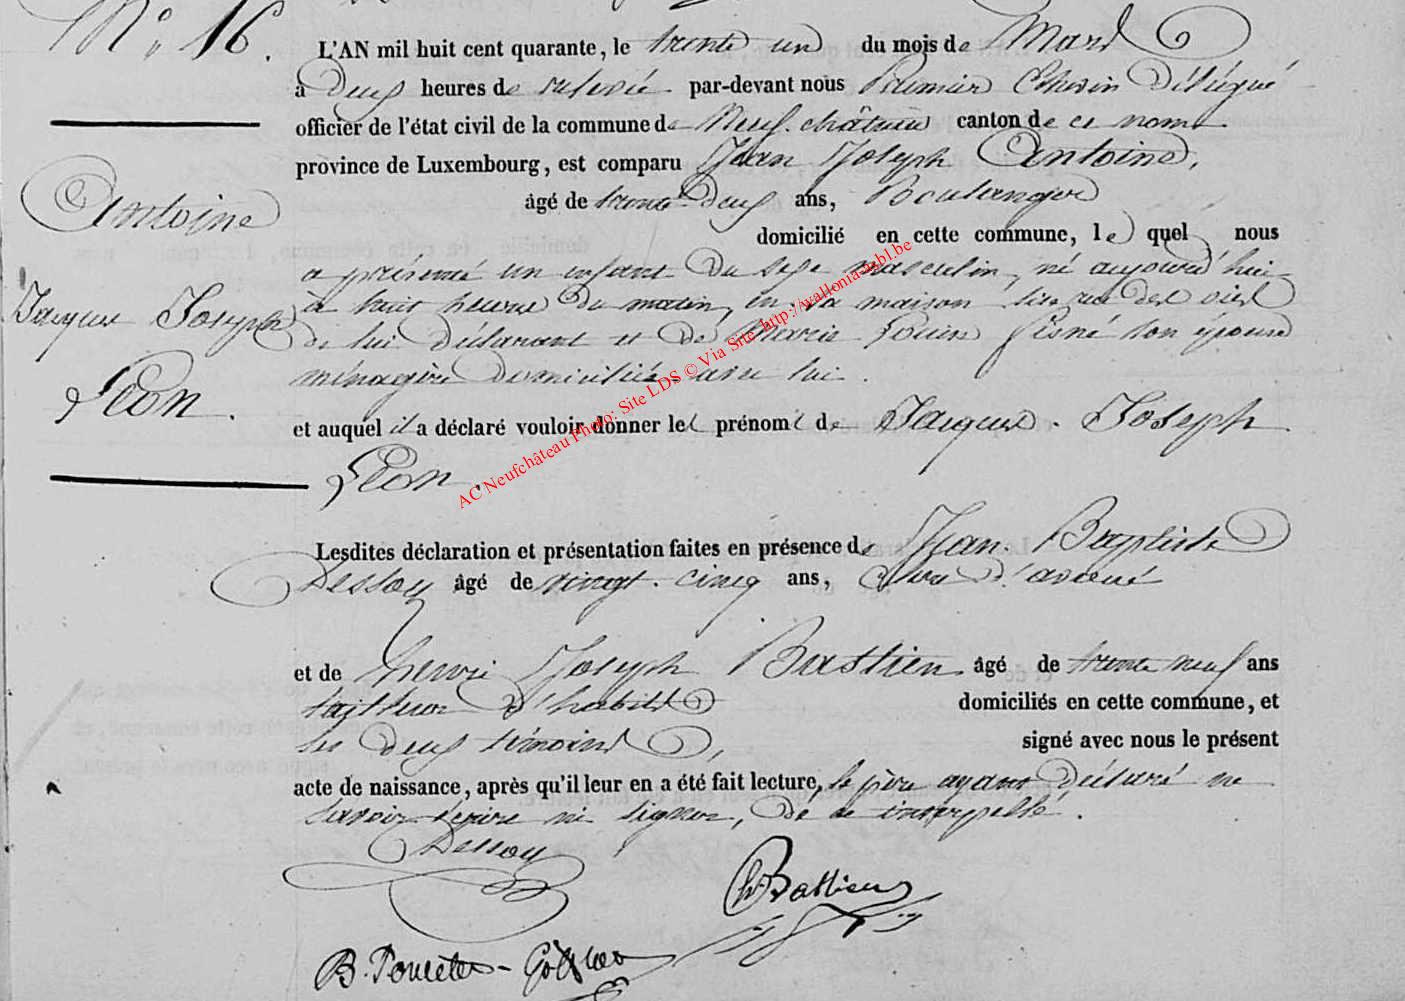 N.° 16.
L'AN mil huit cent quarante, le trente un du mois de Mars
à Deux heures de relevée par-devant nous Premier Echevin Délégué
officier de l'état civil de la commune de Neuf-château canton de ce nom
province de Luxembourg, est comparu Jean Joseph Antoine,
âgé de trente Deux ans, Boulanger
domicilié en cette commune, le quel nous
a présenté un enfant Du sexe masculin, né aujourd'hui
à huit heures du matin, en sa maison sise rue
de lui Déclarant et de Marie son épouse
ménagère Domiciliée avec lui.
et auquel il a déclaré vouloir donner les prénoms de Jacques. Joseph
Léon.
Antoine
Jacques Joseph
Léon.
Lesdites déclaration et présentation faites en présence de Jean. Baptiste
Dessoy âgé de vingt. cinq ans, Clerc D'avoué
et de Henri Joseph Bastien âgé de trente neuf ans
tailleur D'habits domiciliés en cette commune, et
les Deux témoins, signé avec nous le présent
acte de naissance, après qu'il leur en a été fait lecture, le père ayant Déclaré ne
savoir écrire ni signer, De ce interpellé.
Dessoy
Bastien
B. Poncelet-
AC Neufchâteau Photo: Site LDS © Via Site http://wallonia-asbl.be